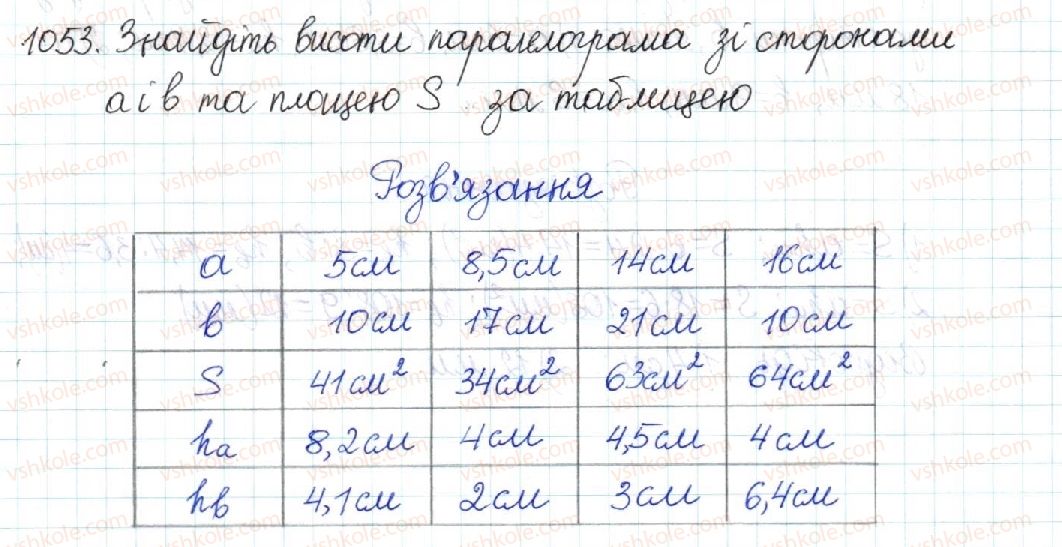 1053. Знайдіть висоти паралелограма зі сторонами
a і b та площею S за таблицею
Розв'язання
a 5см 8,5см 14см 16см
b 10см 17см 21см 10см
S 41см² 34см² 63см² 64см²
ha 8,2см 4см 4,5см 4см
hb 4,1см 2см 3см 6,4см
vshkole.com